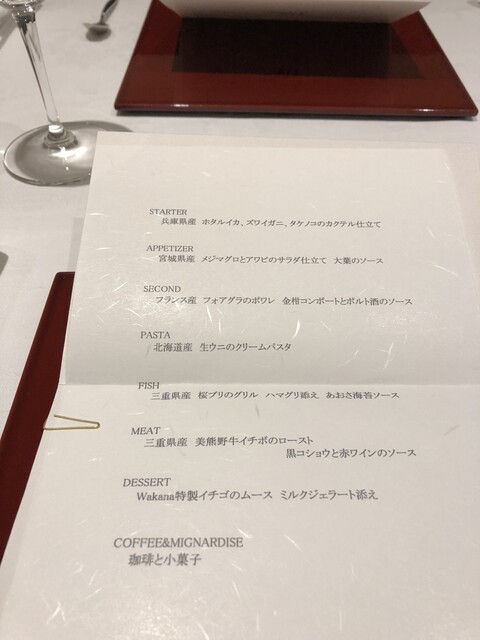 STARTER
兵庫県産 ホタルイカ、ズワイガニ、タケノコのカクテル仕立て
APPETIZER
宮城県産 メジマグロとアワビのサラダ仕立て 大葉のソース
SECOND
フランス産 フォアグラのポワレ 金柑コンポートとポルト酒のソース
PASTA
北海道産 生ウニのクリームパスタ
FISH
三重県産 桜ブリのグリル ハマグリ添え あおさ海苔ソース
MEAT
三重県産 美熊野牛イチボのロースト
黒コショウと赤ワインのソース
DESSERT
Wakana特製イチゴのムース ミルクジェラート添え
COFFEE&MIGNARDISE
珈琲と小菓子